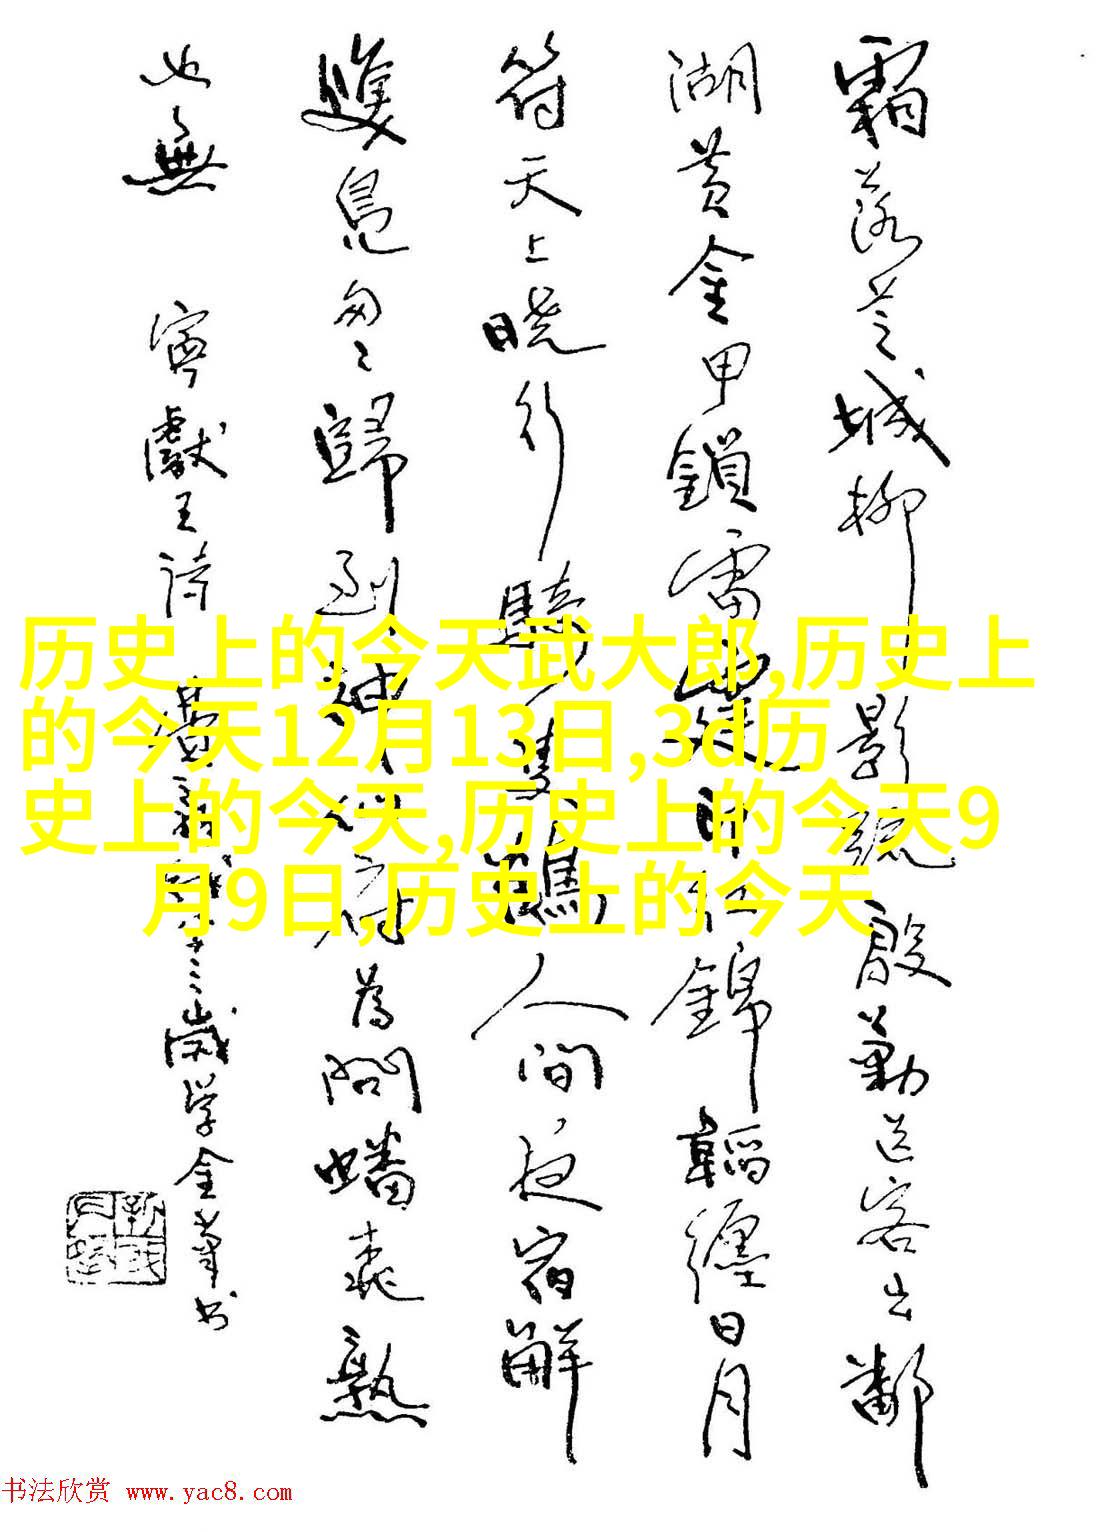 霜落芜城柳影疏殷勤送客出鄱
湖黄金甲锁雷霆印红锦韬缠日月
符天上晓行骑只鹤人间夜宿解
双凫匆匆归到神仙府为问蟠桃熟
也无
宁献王诗
岁学金笔书
历史上的今天武大郎,历史上
的今天12月13日,3d历
史上的今天,历史上的今天9
月9日,历史上的今天
书法欣赏 www.yac8.com